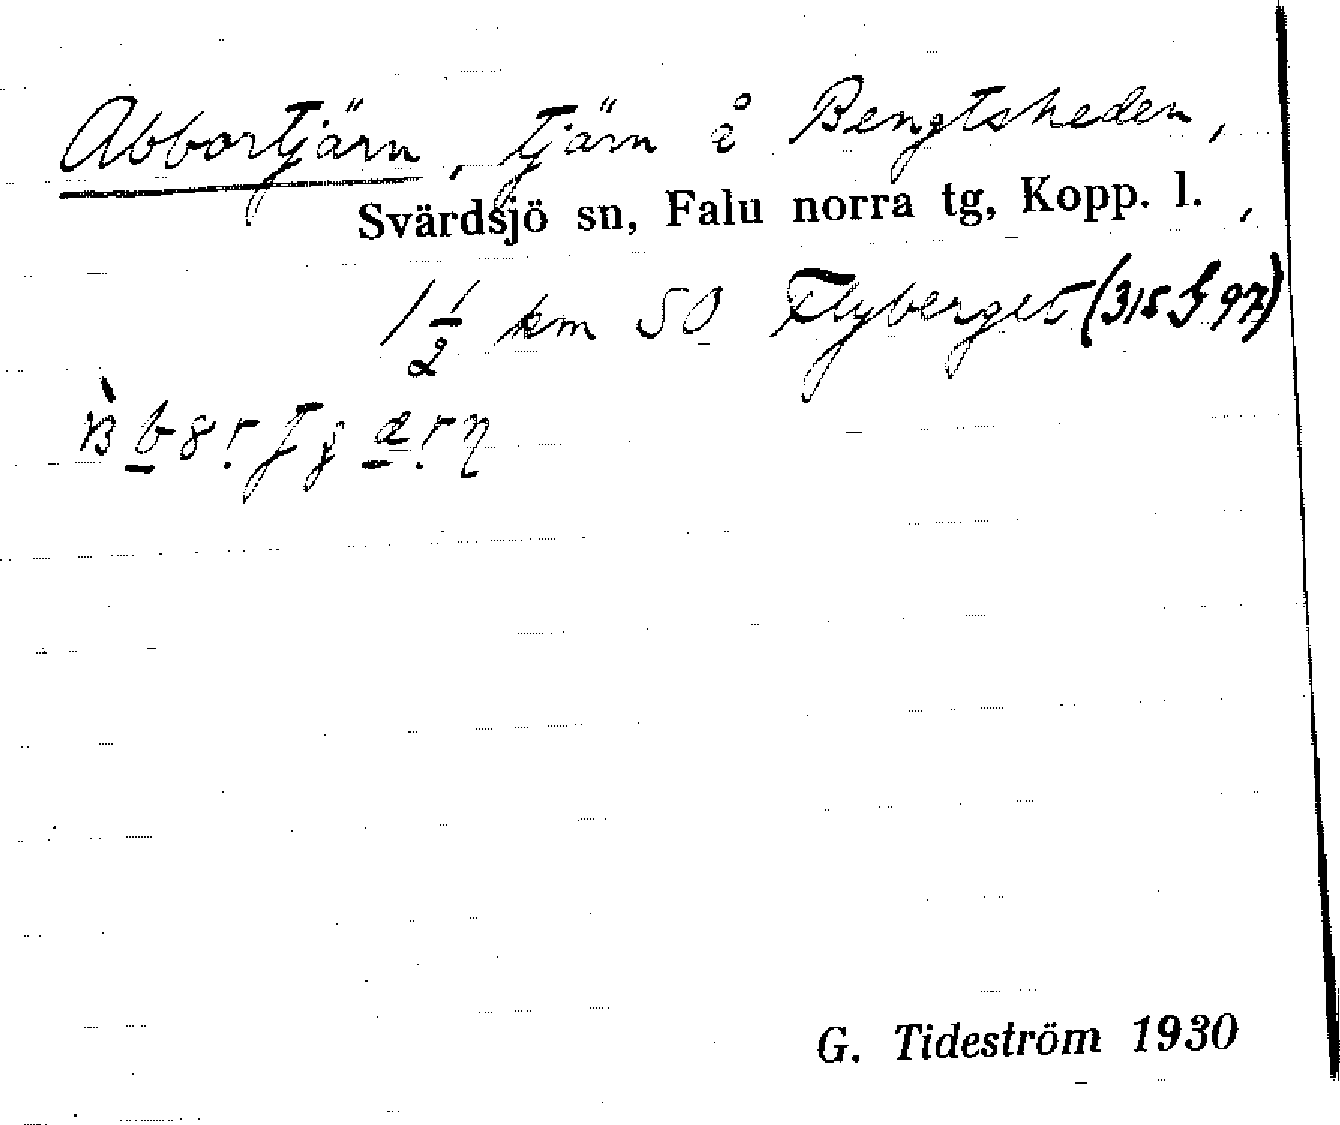 Abbortjärn, tjärn å Bengtsheden,
Svärdsjö sn, Falu norra tg, Kopp. l. ,
1 1/2 km SO Flyberget (315 S 97)
G. Tideström 1930